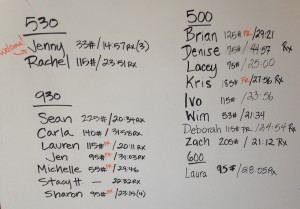 530
welcome!
Jenny 33# / 14:57 Rx (3)
Rachel 115# / 23:51 Rx
930
Sean 225# / 20:34 Rx
Carla 140# / 31:53 Rx
Lauren 115# PR / 20:11 Rx
Jen 95# PR / 31:03 Rx
Michelle 55# PR / 29:46
Stacy H — 22:32 Rx
Sharon 95# PR / 23:19 (4)
500
Brian 125# PR / 29:21
Denise 75# / 44:57 Rx
Lacey 75# / 25:00
Kris 185# PR / 27:56 Rx
Ivo 115# / 23:56
Wim 53# / 21:34
Deborah 115# PR / 24:54 Rx
Zach 205# / 21:12 Rx
600
Laura 95# / 28:05 Rx